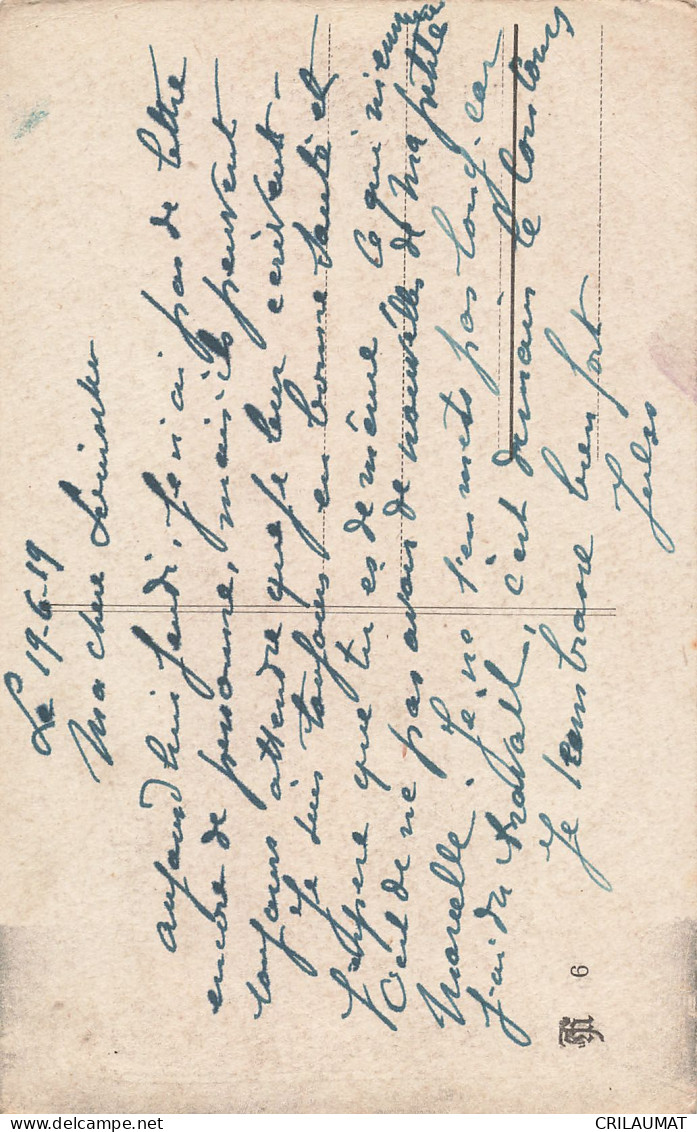 Le 19-6-19
Ma chère
aujourdhui jeudi, je n'ai pas de lettre
encore de personne, mais ils peuvent
toujours attendre que je leur écrivent -
Je suis toujours en bonne santé et
j'espère que tu es de même Ce qui
c'est de ne pas avoir de nouvelles de ma petite
Marcelle. Je ne t'en mets pas long, car
j'ai du travail, c'est demain le
Je t'embrasse bien fort
Jules
6
CRILAUMAT